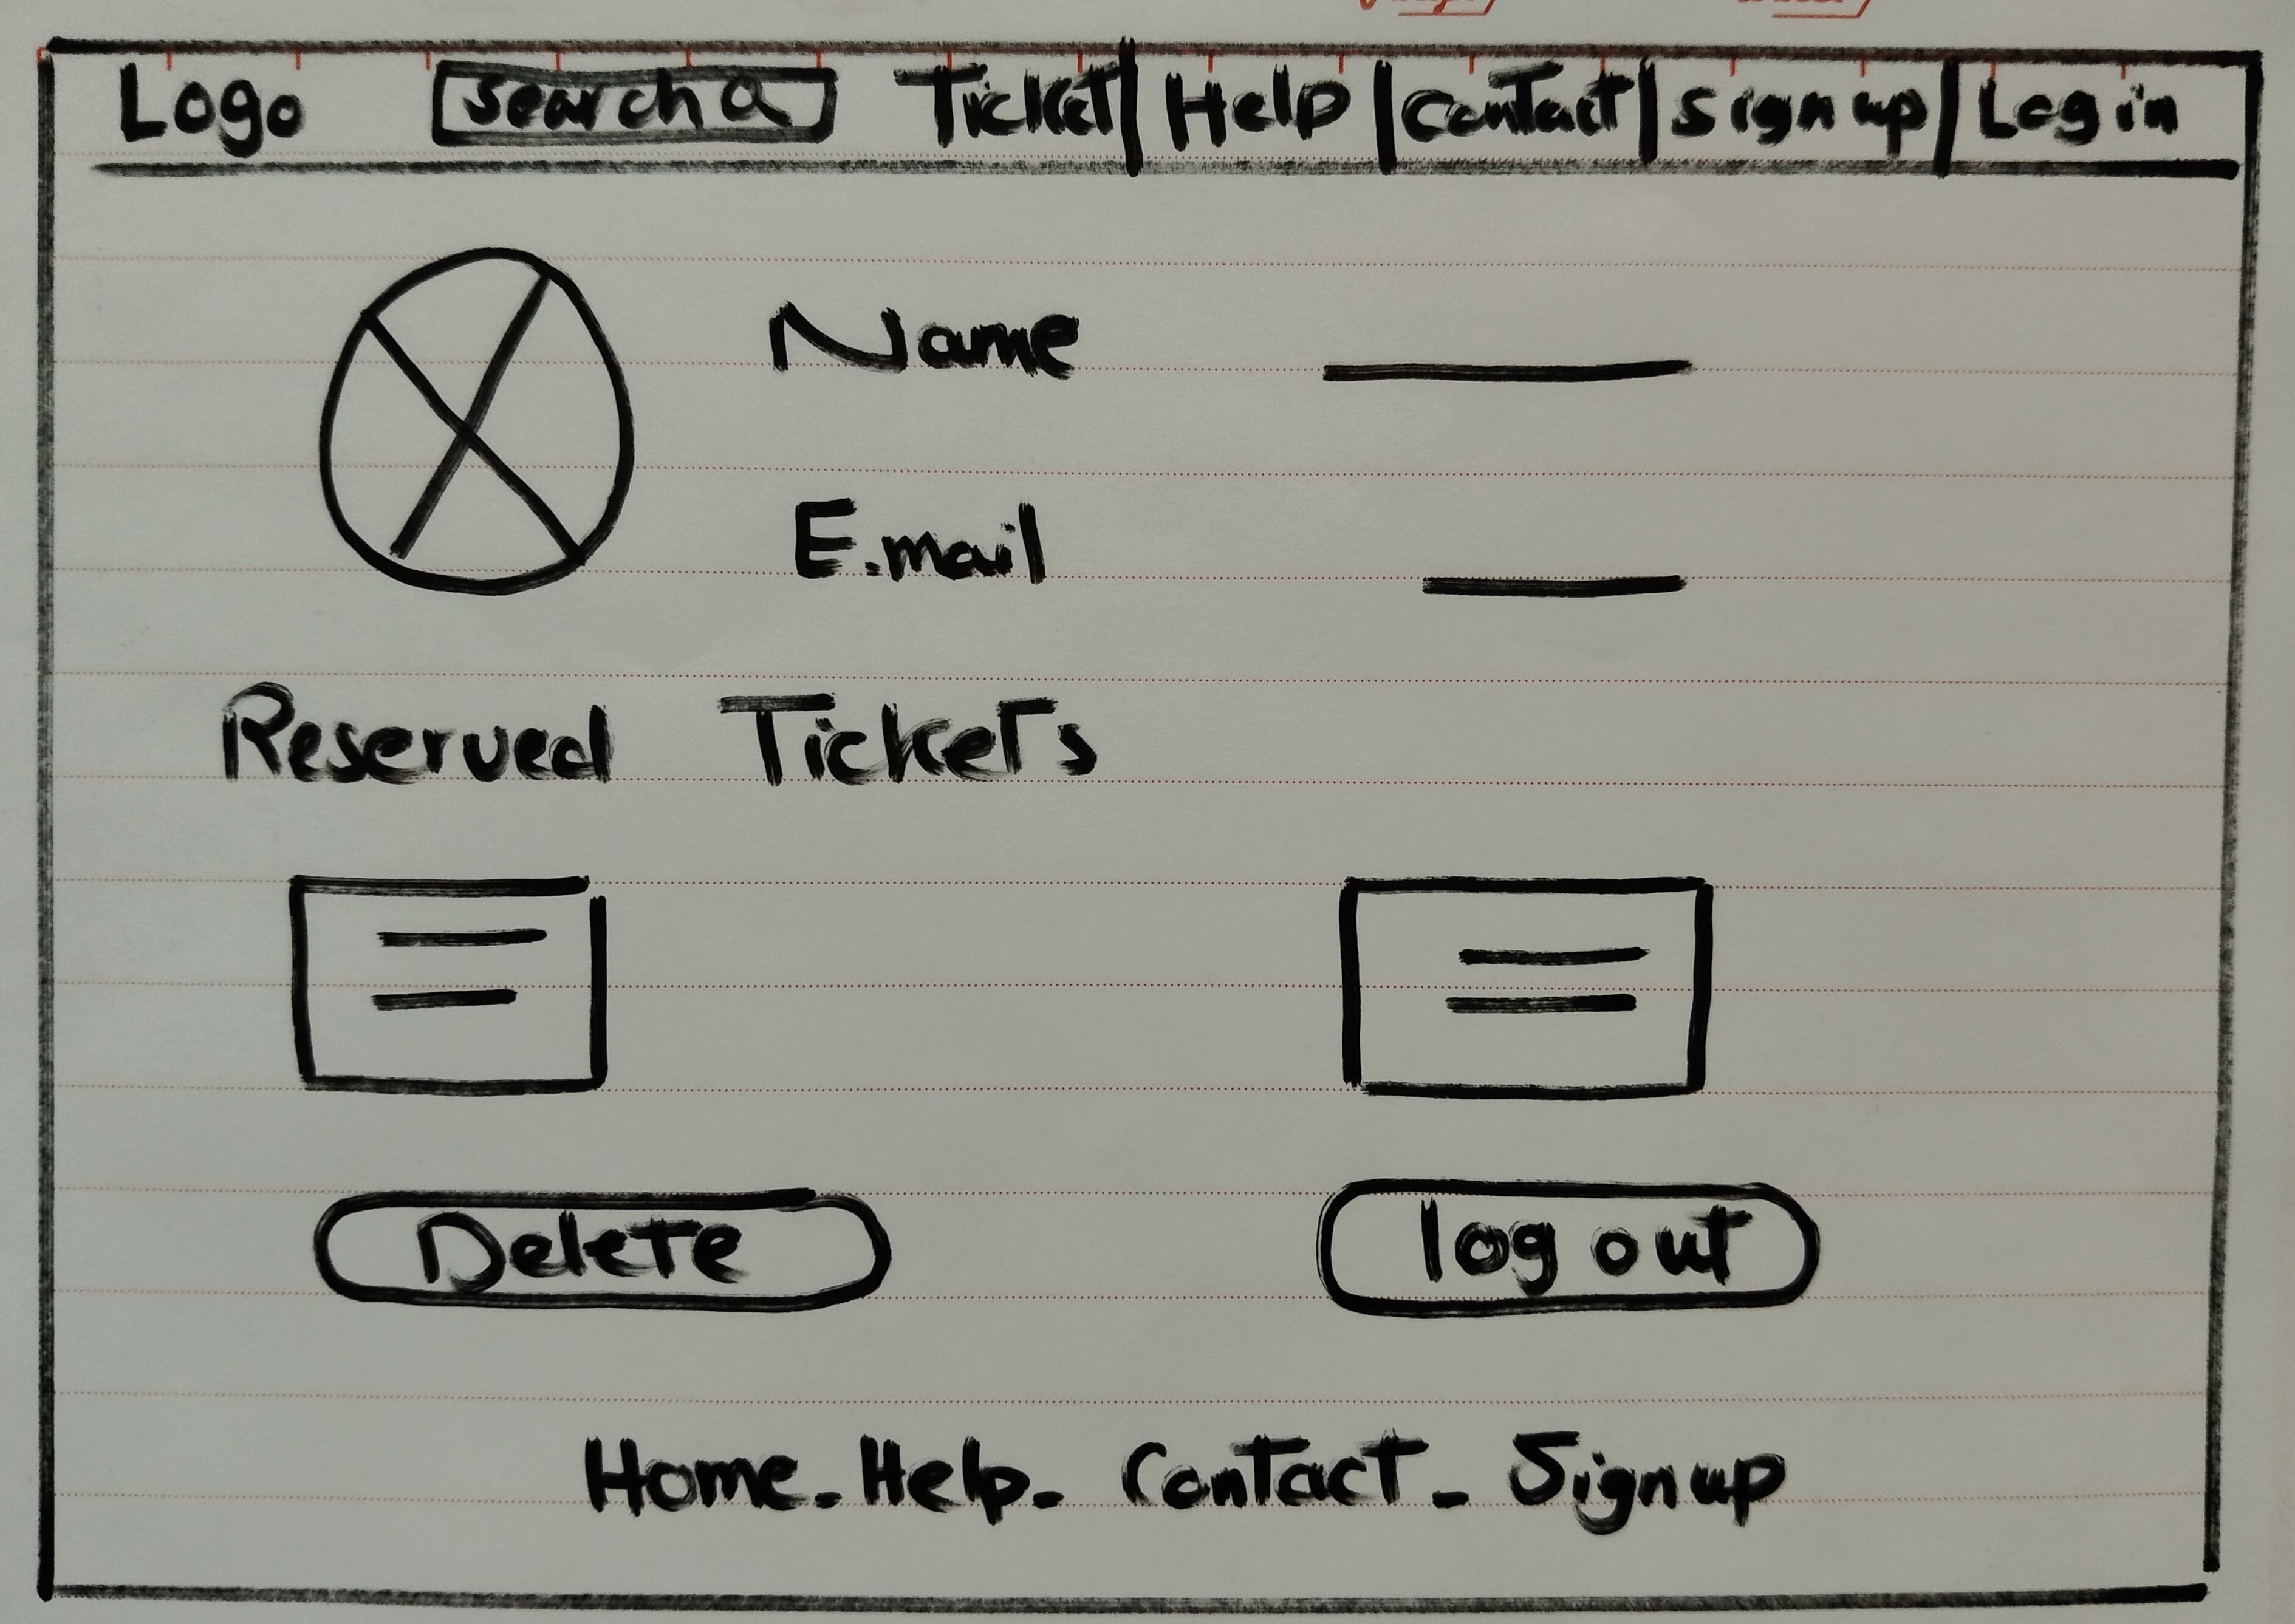 Logo Search Ticket Help Contact Sign up Log in
Name
E.mail
Reserved Tickets
Delete log out
Home - Help - Contact - Sign up